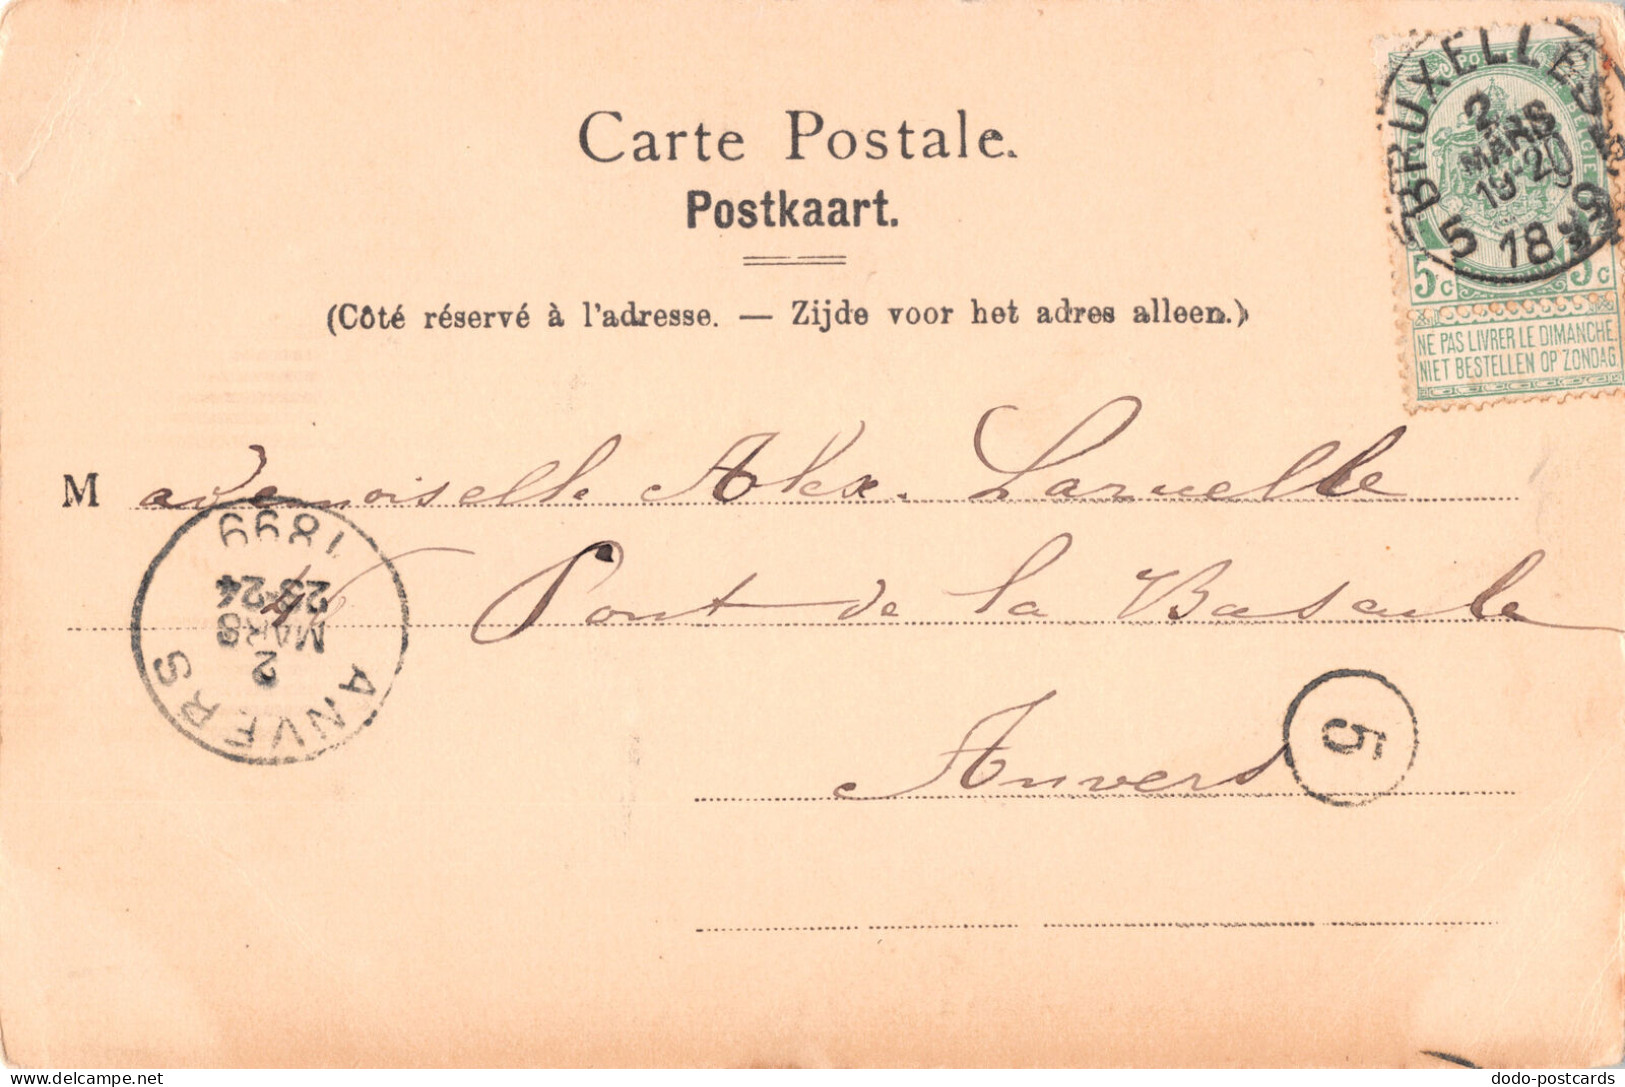 Carte Postale.
Postkaart.
(Côté réservé à l'adresse. — Zijde voor het adres alleen.)
BRUXELLES
2
MARS
19-20
5 18
5c 5c
NE PAS LIVRER LE DIMANCHE
NIET BESTELLEN OP ZONDAG
Mademoiselle Alex. Laruelle
Pont de la Bascule
Anvers
1899
23-24
MARS
2
ANVERS
5
dodo-postcards